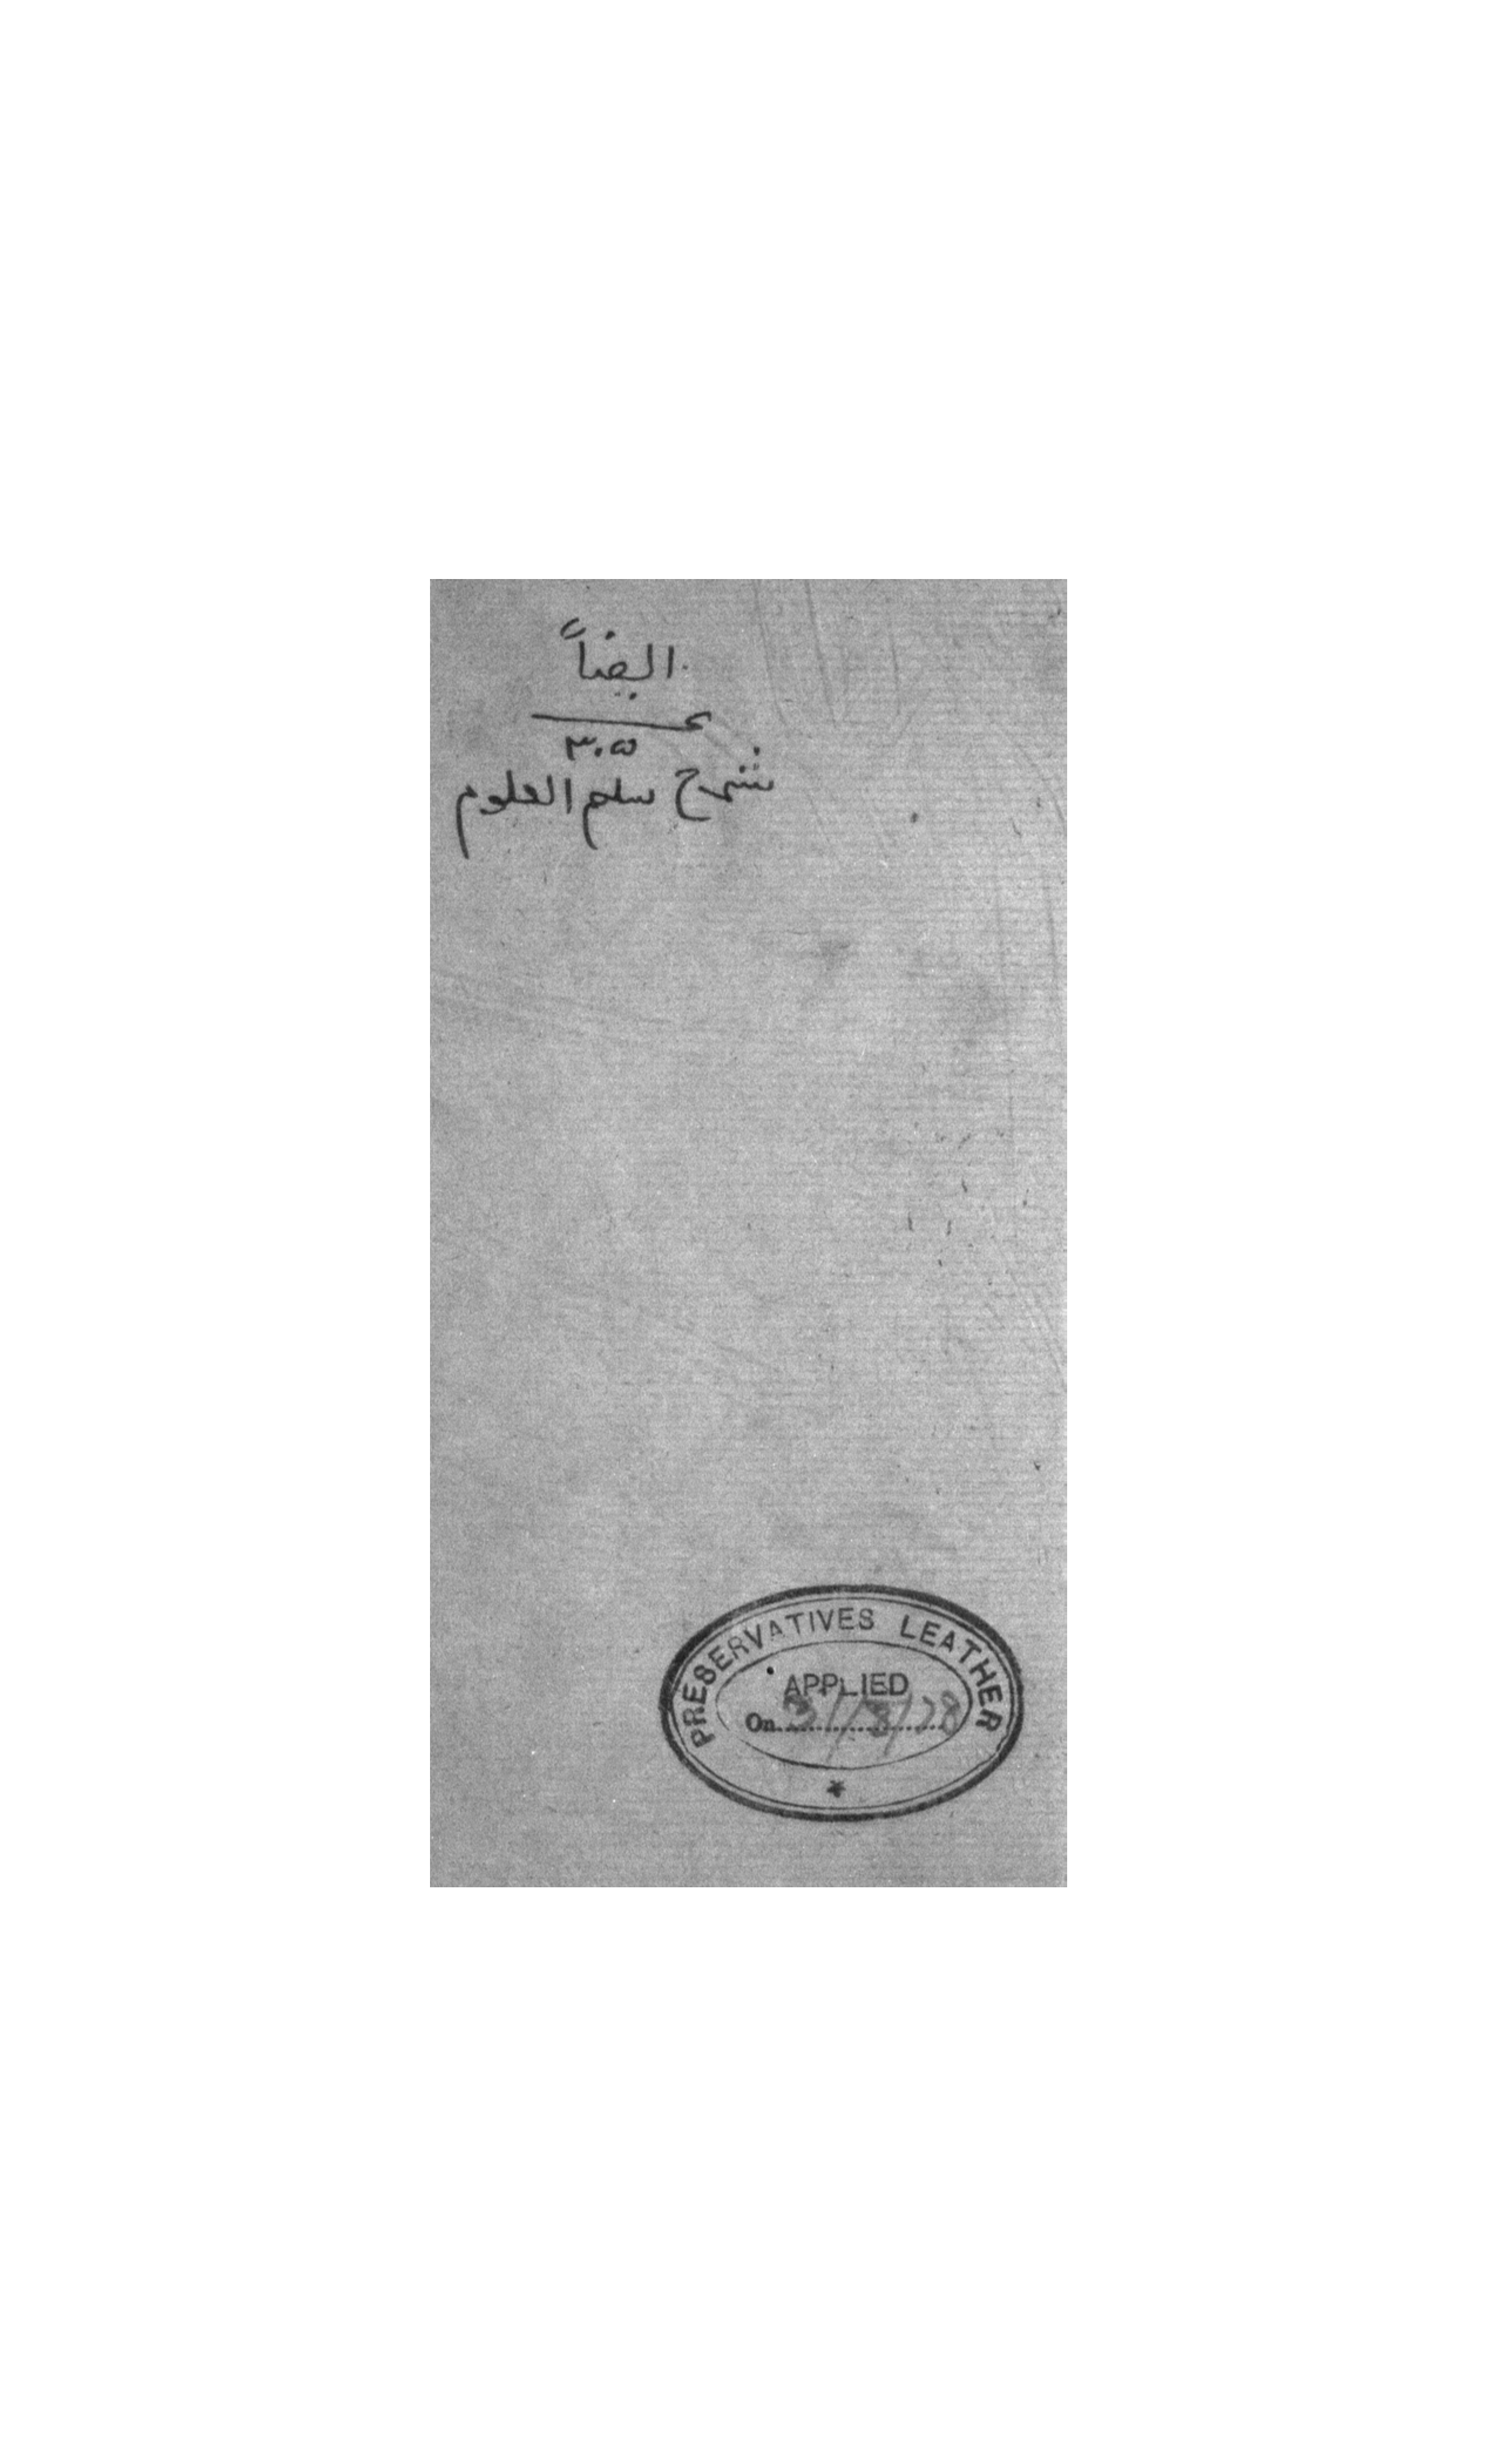 ايضاً
٣٠٥
شرح سلم العلوم
PRESERVATIVES LEATHER
APPLIED
On 31/8/28